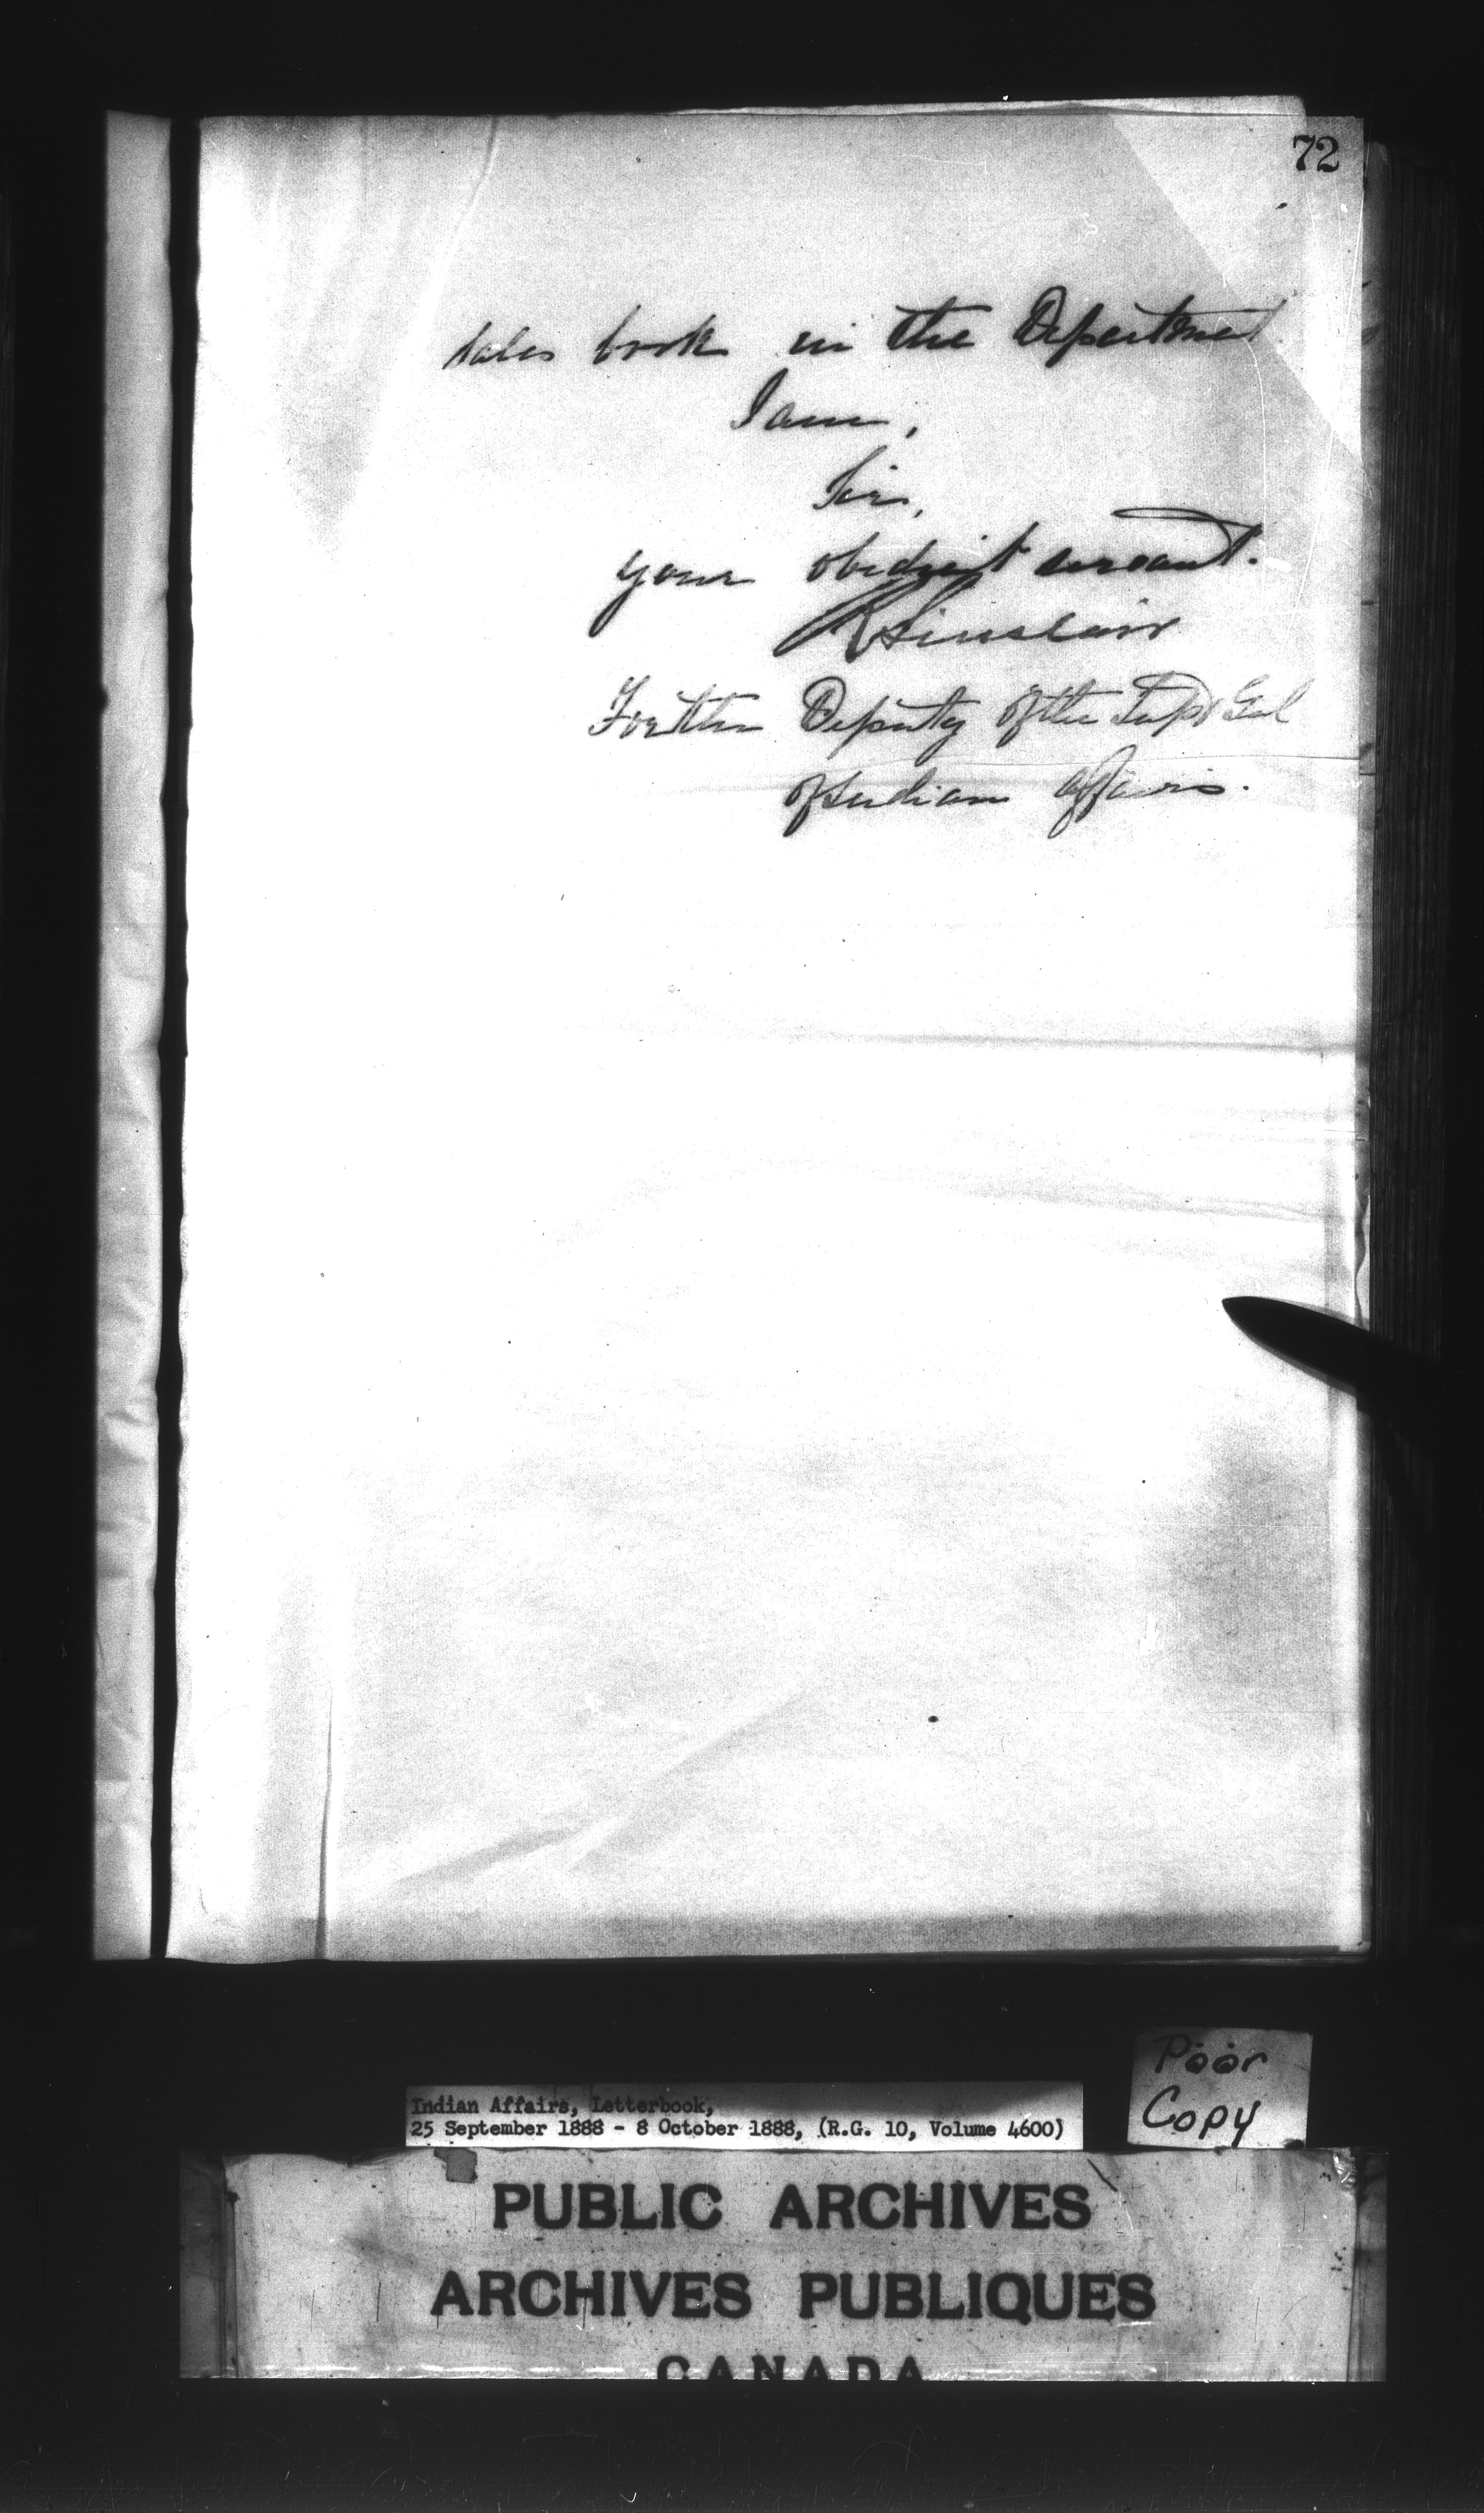 72
sales book in the Department
I am,
Sir,
your obedient servant.
R Sinclair
For the Deputy of the Supt Genl
of Indian Affairs.
Poor
Copy
Indian Affairs, Letterbook,
25 September 1888 - 8 October 1888, (R.G. 10, Volume 4600)
PUBLIC ARCHIVES
ARCHIVES PUBLIQUES
CANADA